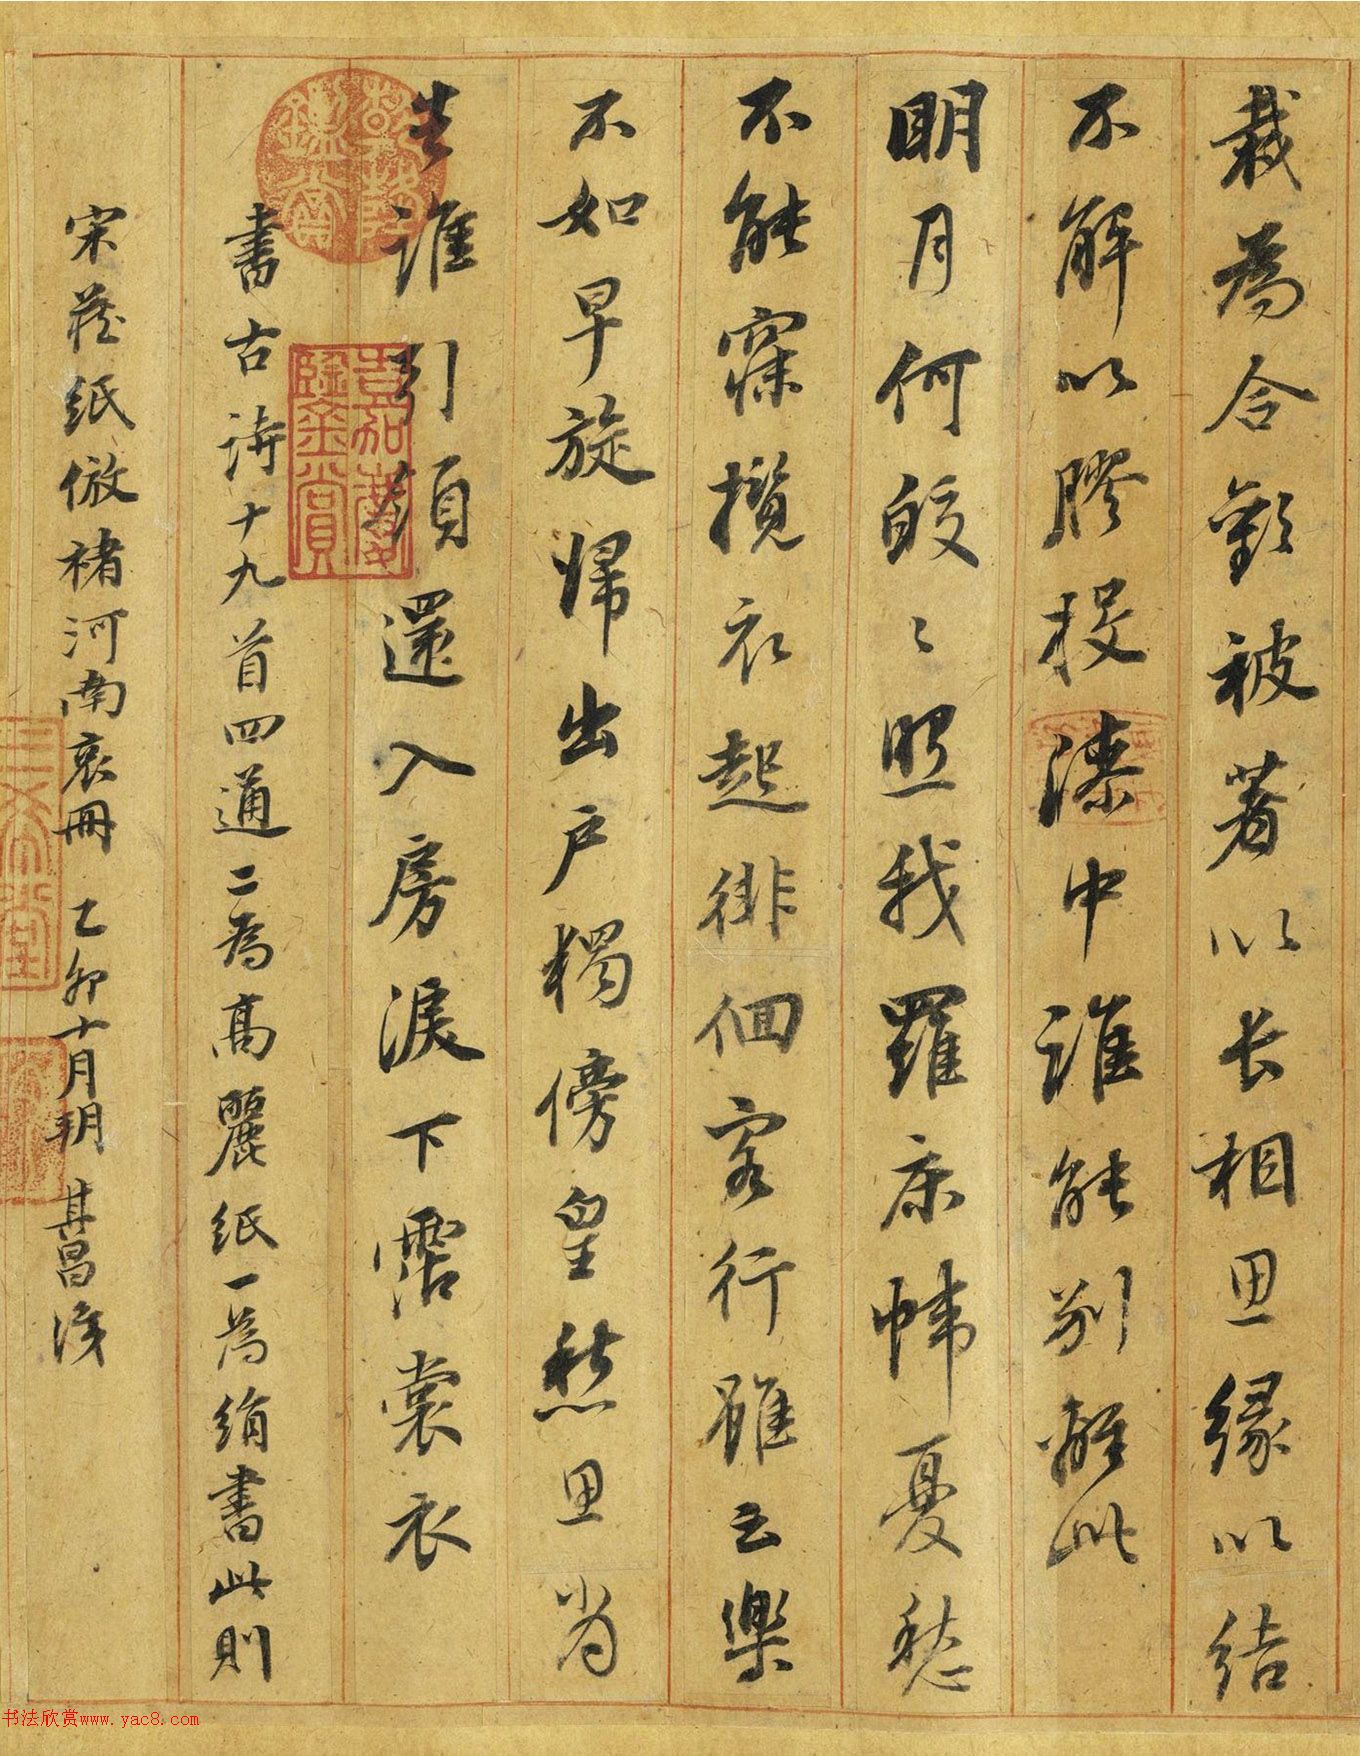 裁為合歡被著以长相思緣以结
不解以膠投漆中誰能别離此
明月何皎〻照我羅床幃憂愁
不能寐攬衣起徘徊客行雖云樂
不如早旋歸出户獨傍皇愁思當
告誰引領還入房淚下霑裳衣
書古詩十九首四通二為高麗紙一為绢書此則
宋藏紙倣褚河南哀冊 乙卯十月朔 其昌識
乾隆鑑賞
嘉慶鑒賞
三希堂
书法欣赏www.yac8.com